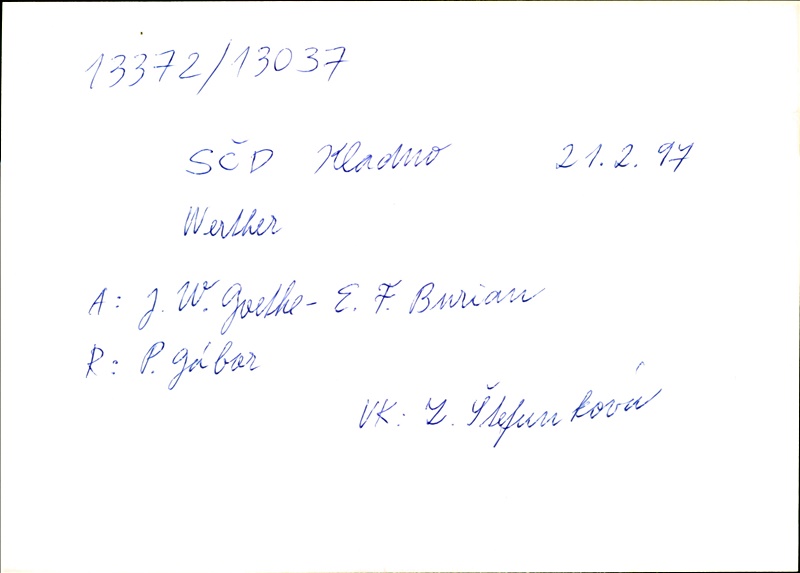 13372/13037
SČD Kladno 21.2.97
Werther
A: J. W. Goethe - E. F. Burian
R: P. Gábor
VK: Z. Štefunková